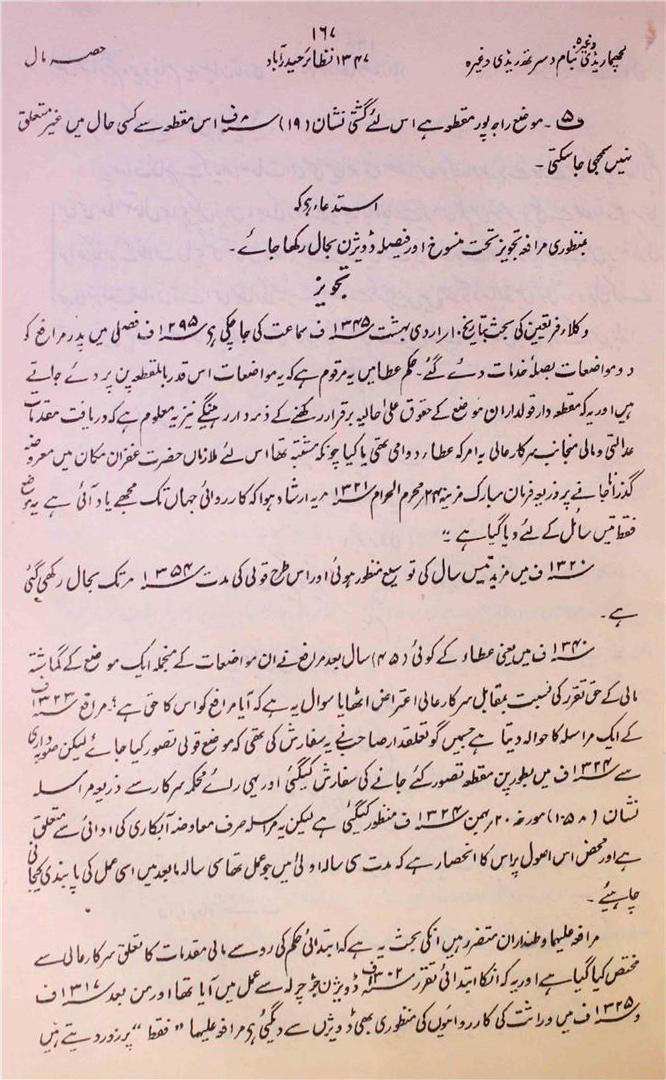 ۱۶۷
بھیماریڈی وغیرہ بنام دسرتھ ریڈی وغیرہ ۱۳۴۷ نظائر حیدرآباد حصہ مال
ف۵۔ موضع راجہ پور مقطعہ ہے اس لئے گشتی نشان (۱۹) ۱۳۰۸ف اس مقطعہ سے کسی حال میں غیر متعلق
نہیں سمجھی جاسکتی۔
استدعاء ہیکہ
بمنظوری مرافعہ تجویز تحت منسوخ اور فیصلہ ڈویژن بحال رکھا جائے۔
تجویز
وکلاء فریقین کی بحث بتاریخ ۱۰؍اردی بہشت ۱۳۴۵ف سماعت کی جاچکی ہے ۱۲۹۵ف فصلی میں پدر مرافع کو
دو مواضعات بصلۂ خدمات دئے گئے۔ حکم عطا میں یہ مرقوم ہے کہ یہ مواضعات اس قدر بالمقطعہ پن پر دئے جاتے
ہیں اور یہ کہ مقطعہ دار قولداران موضع کے حقوق علیٰ حالیہ برقرار رکھنے کے ذمہ دار رہینگے نیز یہ معلوم ہے کہ دریافت مقدمات
عدالتی و مالی منجانب سرکار عالی یہ امر کہ عطاء دوامی تھی یا کیا چونکہ مشتبہ تھا اس لئے ملازماں حضرت غفران مکان میں معروضہ
گذرانا جانے پر ذریعہ فرمان مبارک مزینہ ۲۴؍محرم الحرام ۱۳۲۱ یہ ارشاد ہوا کہ کارروائی جہاں تک مجھے یاد آئی ہے یہ موضع
فقط تیس سال کے لئے دیا گیا ہے"
۱۳۲۰ف میں مزید تیس سال کی توسیع منظور ہوئی اور اس طرح قولی کی مدت ۱۳۵۴ تک بحال رکھی گئی
ہے۔
۱۳۴۰ف میں یعنی عطاء کے کوئی (۴۵) سال بعد مرافع نے ان مواضعات کے منجملہ ایک موضع کے گماشتہ
مالی کے حق تقرر کی نسبت بمقابل سرکار عالی اعتراض اٹھایا سوال یہ ہے کہ آیا مرافع کو اس کا حق ہے؟ مرافع ۱۳۲۳ف
کے ایک مراسلہ کا حوالہ دیتا ہے جسمیں گو تعلقدار صاحب نے یہ سفارش کی تھی کہ موضع قولی تصور کیا جائے لیکن صوبہ داری
سے ۱۳۲۴ف میں بطور پن مقطعہ تصور کئے جانے کی سفارش کیگئی اور یہی رائے محکمہ سرکار سے ذریعہ مراسلہ
نشان (۱۰۵۸) مورخہ ۲۰؍بہمن ۱۳۲۴ف منظور کیگئی ہے لیکن یہ مراسلہ صرف معاوضہ آبکاری کی ادائی سے متعلق
ہے اور محض اس اصول پر اس کا انحصار ہے کہ مدت سی سالہ اولیٰ میں جو عمل تھا سی سالہ مابعد میں اسی عمل کی پابندی کیجانی
چاہیئے۔
مرافعہ علیہما وطنداران متضرر ہیں انکی بحث یہ ہے کہ ابتدائی حکم کی رو سے مالی مقدمات کا تعلق سرکار عالی سے
مختص کیا گیا ہے اور یہ کہ انکا ابتدائی تقرر ۱۳۰۲ف ڈویژن جڑچرلہ سے عمل میں آیا تھا اور من بعد ۱۳۱۷ف
و ۱۳۲۵ف میں وراثت کی کارروائیوں کی منظوری بھی ڈویژن سے دیگئی ہے مرافعہ علیہما "فقط" پر زور دیتے ہیں